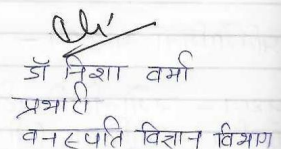 डॉ निशा वर्मा
प्रभारी
वनस्पति विज्ञान विभाग